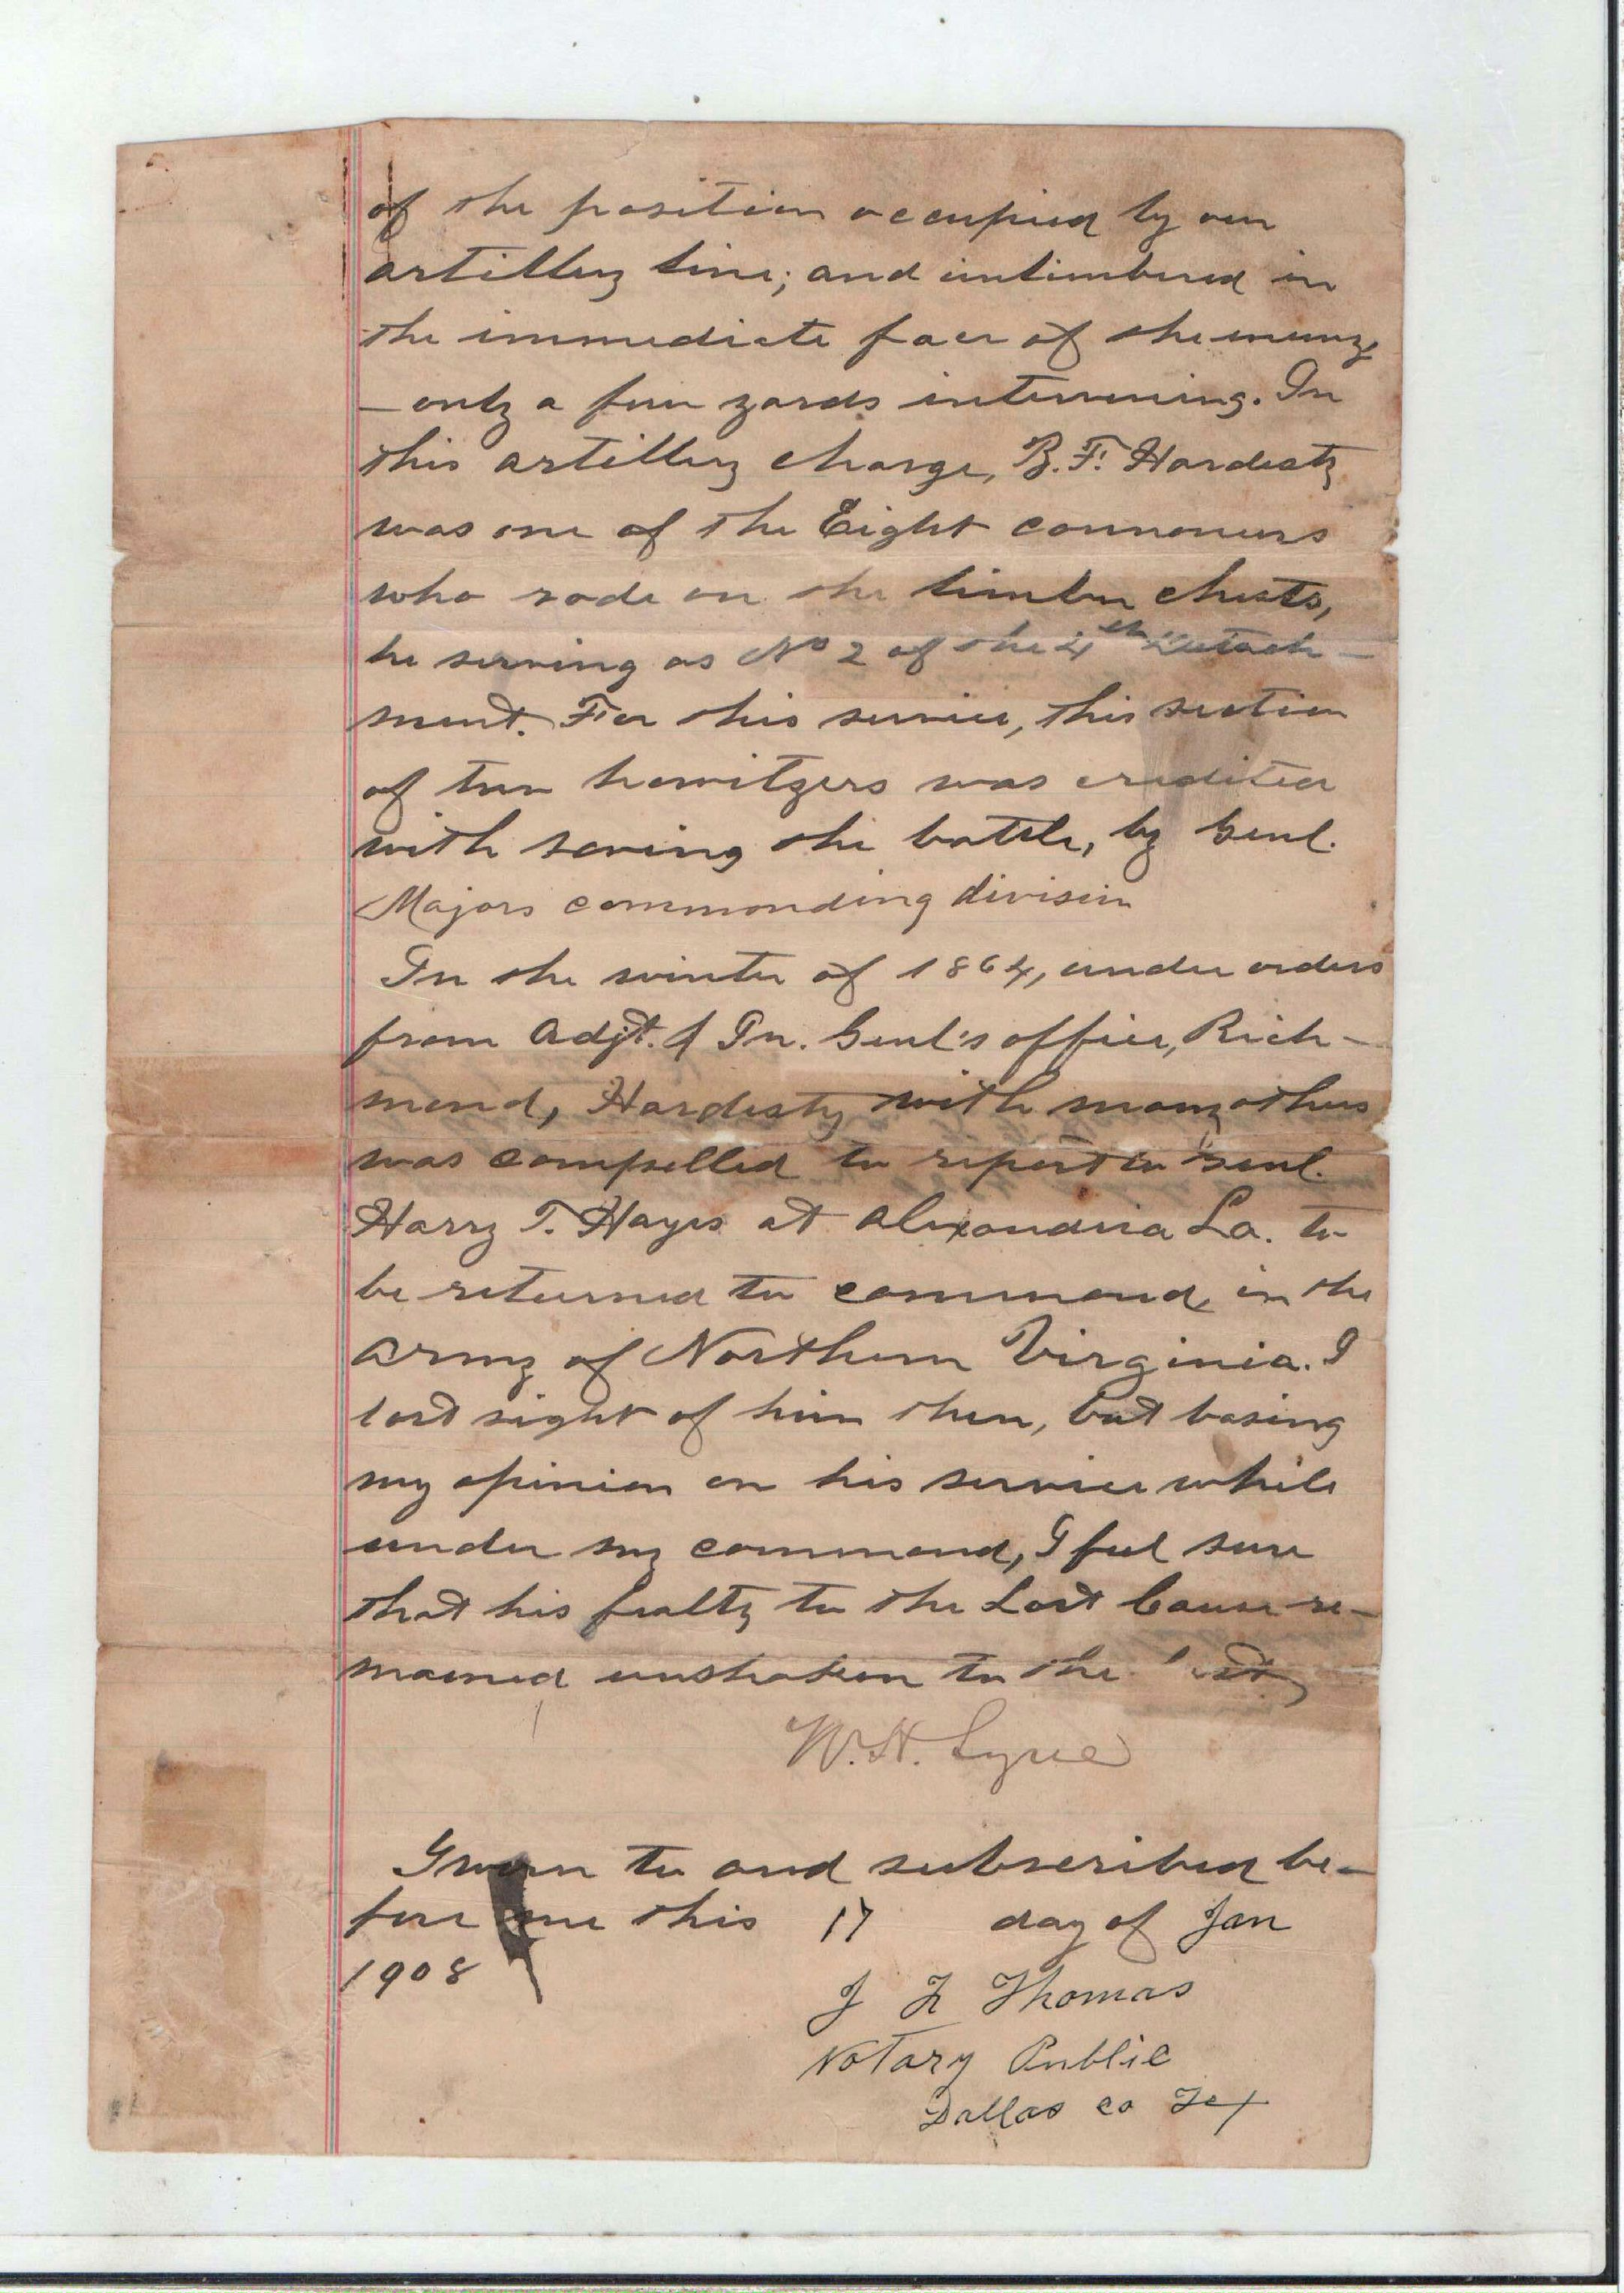 of the position occupied by our
artillery line; and unlimbered in
the immediate face of the enemy
— only a few yards intervening. In
this artillery charge, B. F. Hardesty
was one of the Eight cannoneers
who rode on the limber chests,
he serving as No 2 of the 4th Detach-
ment. For this service, this section
of two howitzers was credited
with saving the battle, by Genl.
Majors commanding division
In the winter of 1864, under orders
from Adjt. & In. Genl's office, Rich-
mond, Hardesty with many others
was compelled to report to Genl.
Harry T. Hayes at Alexandria La. to
be returned to command in the
Army of Northern Virginia. I
lost sight of him then, but basing
my opinion on his service while
under my command, I feel sure
that his fealty to the Lost Cause re-
mained unshaken to the last
W. H. Lyne
Sworn to and subscribed be-
fore me this 17 day of Jan
1908
J Thomas
Notary Public
Dallas co Tex